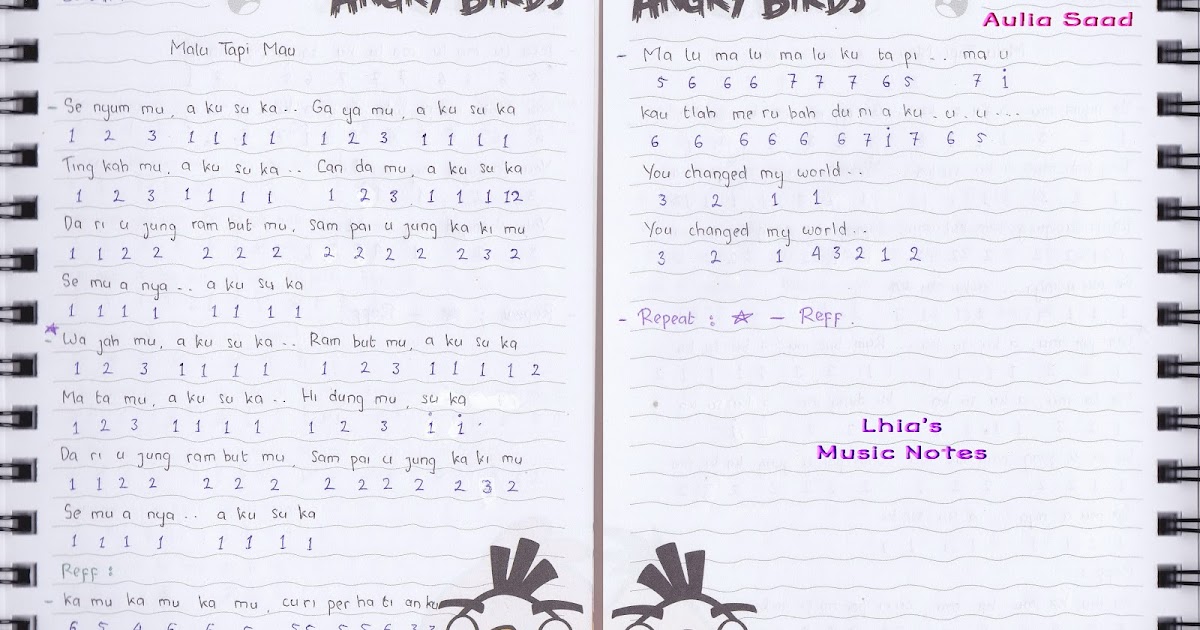 ANGRY BIRDS
Malu Tapi Mau
- Se nyum mu, a ku su ka.. Ga ya mu, a ku su ka
1 2 3 1 1 1 1 1 2 3 1 1 1 1
Ting kah mu, a ku su ka.. Can da mu, a ku su ka
1 2 3 1 1 1 1 1 2 3 1 1 1 12
Da ri u jung ram but mu, Sam pai u jung ka ki mu
1 1 2 2 2 2 2 2 2 2 2 2 3 2
Se mu a nya .. a ku su ka
1 1 1 1 1 1 1 1
- Wa jah mu, a ku su ka.. Ram but mu, a ku su ka
1 2 3 1 1 1 1 1 2 3 1 1 1 1 2
Ma ta mu, a ku su ka.. Hi dung mu, su ka
1 2 3 1 1 1 1 1 2 3 i i
Da ri u jung ram but mu, Sam pai u jung ka ki mu
1 1 2 2 2 2 2 2 2 2 2 2 3 2
Se mu a nya .. a ku su ka
1 1 1 1 1 1 1 1
Reff :
- ka mu ka mu ka mu, cu ri per ha ti an ku
ANGRY BIRDS
Aulia Saad
- Ma lu ma lu ma lu ku ta pi .. ma u
5 6 6 6 7 7 7 6 5 7 i
kau tlah me ru bah du ni a ku .u .u...
6 6 6 6 6 6 7 i 7 6 5
You changed my world..
3 2 1 1
You changed my world..
3 2 1 4 3 2 1 2
- Repeat : ☆ - Reff.
Lhia's
Music Notes